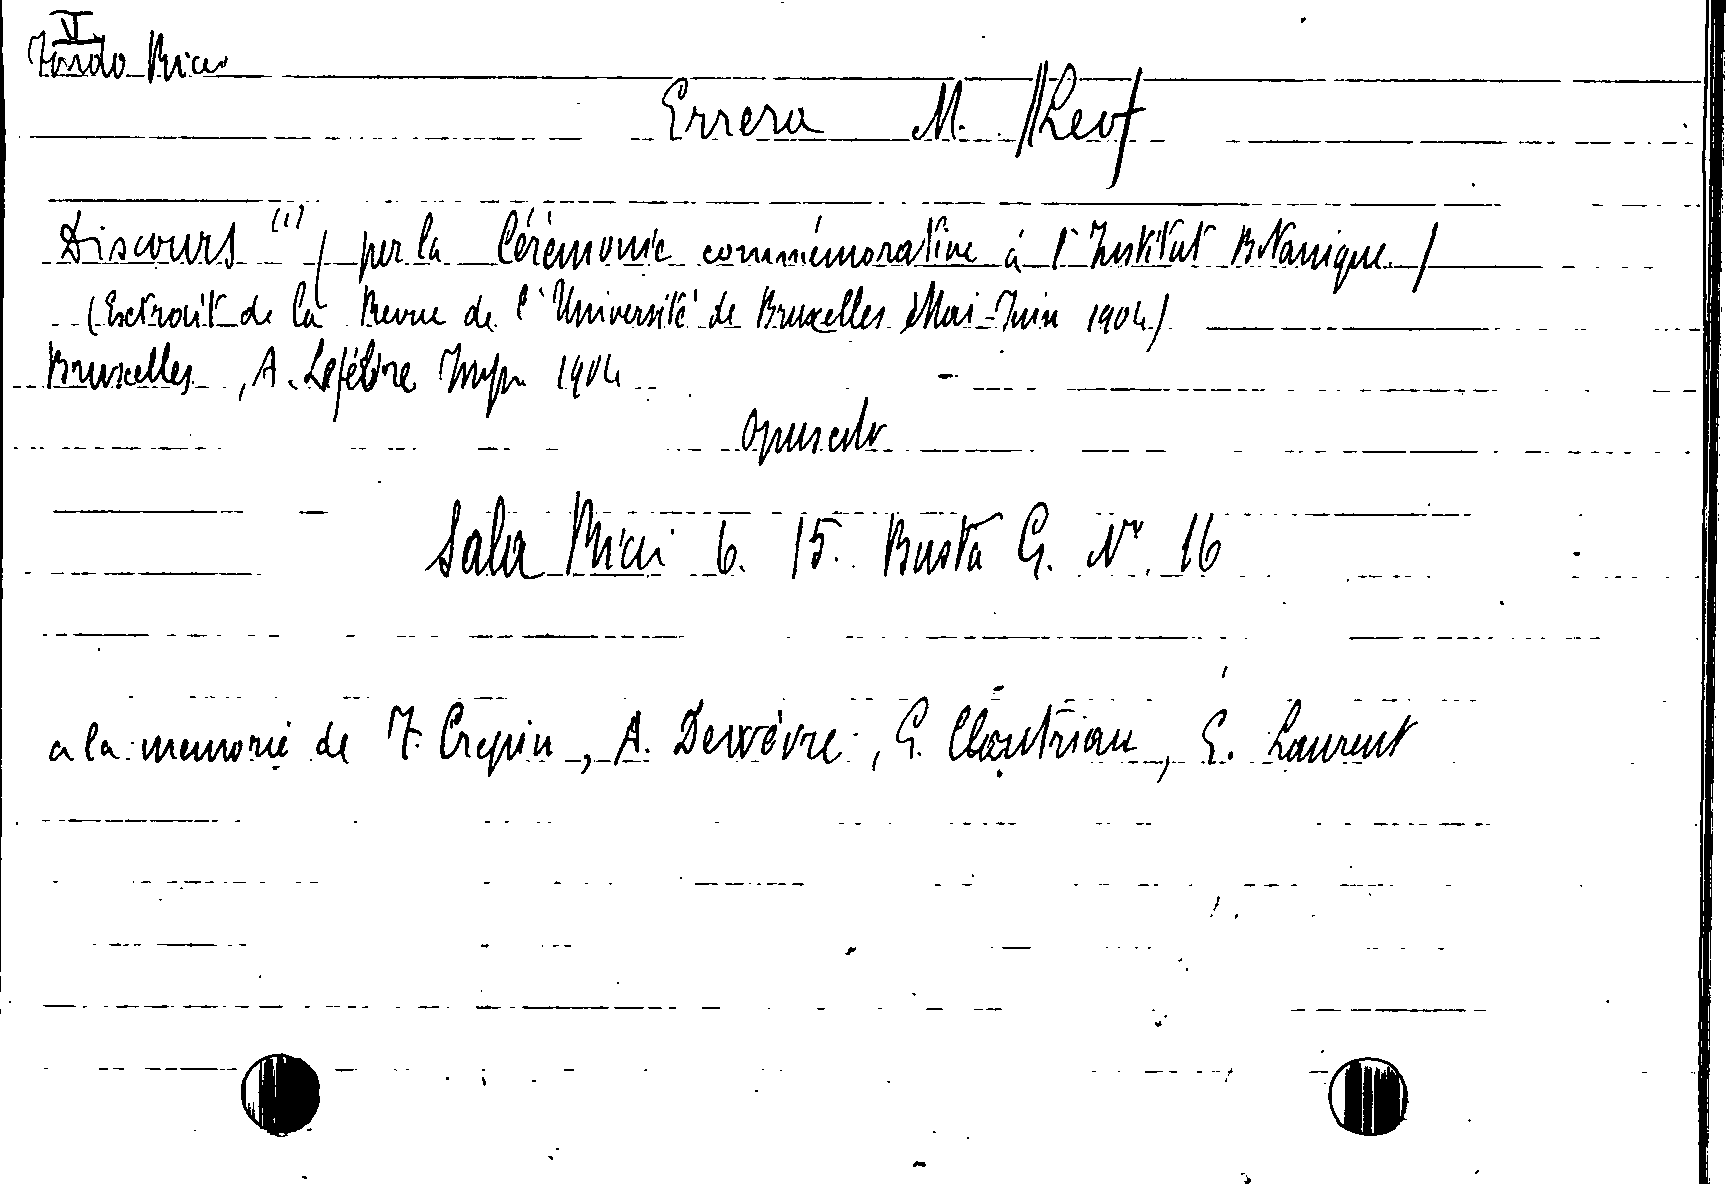 VI
Fondo Ricci
Errera M. /Leo/
Discours (1) / per la Cérémonie commémorative à l'Institut Botanique /
(Extrait de la Revue de l'Université de Bruxelles Mai-Juin 1904)
Bruxelles, A. Lefébvre Imp. 1904
opuscolo
Sala Ricci 6. 15. Busta G. Nr. 16
a la memorie de F. Crepin, A. Dewèvre, G. Clautriau, É. Laurent